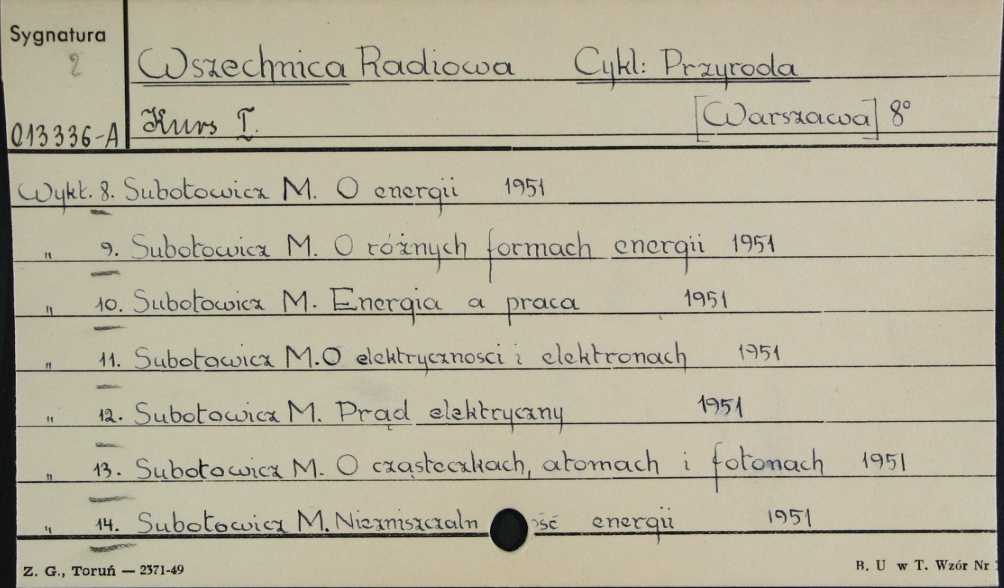 Sygnatura
2
Wszechnica Radiowa Cykl: Przyroda
013336-A Kurs I. [Warszawa] 8°
Wykł. 8. Subotowicz M. O energii 1951
" 9. Subotowicz M. O różnych formach energii 1951
" 10. Subotowicz M. Energia a praca 1951
" 11. Subotowicz M. O elektrycznosci i elektronach 1951
" 12. Subotowicz M. Prąd elektryczny 1951
" 13. Subotowicz M. O cząsteczkach, atomach i fotonach 1951
" 14. Subotowicz M. Niezniszczaln ość energii 1951
Z. G., Toruń — 2371-49 B. U w T. Wzór Nr